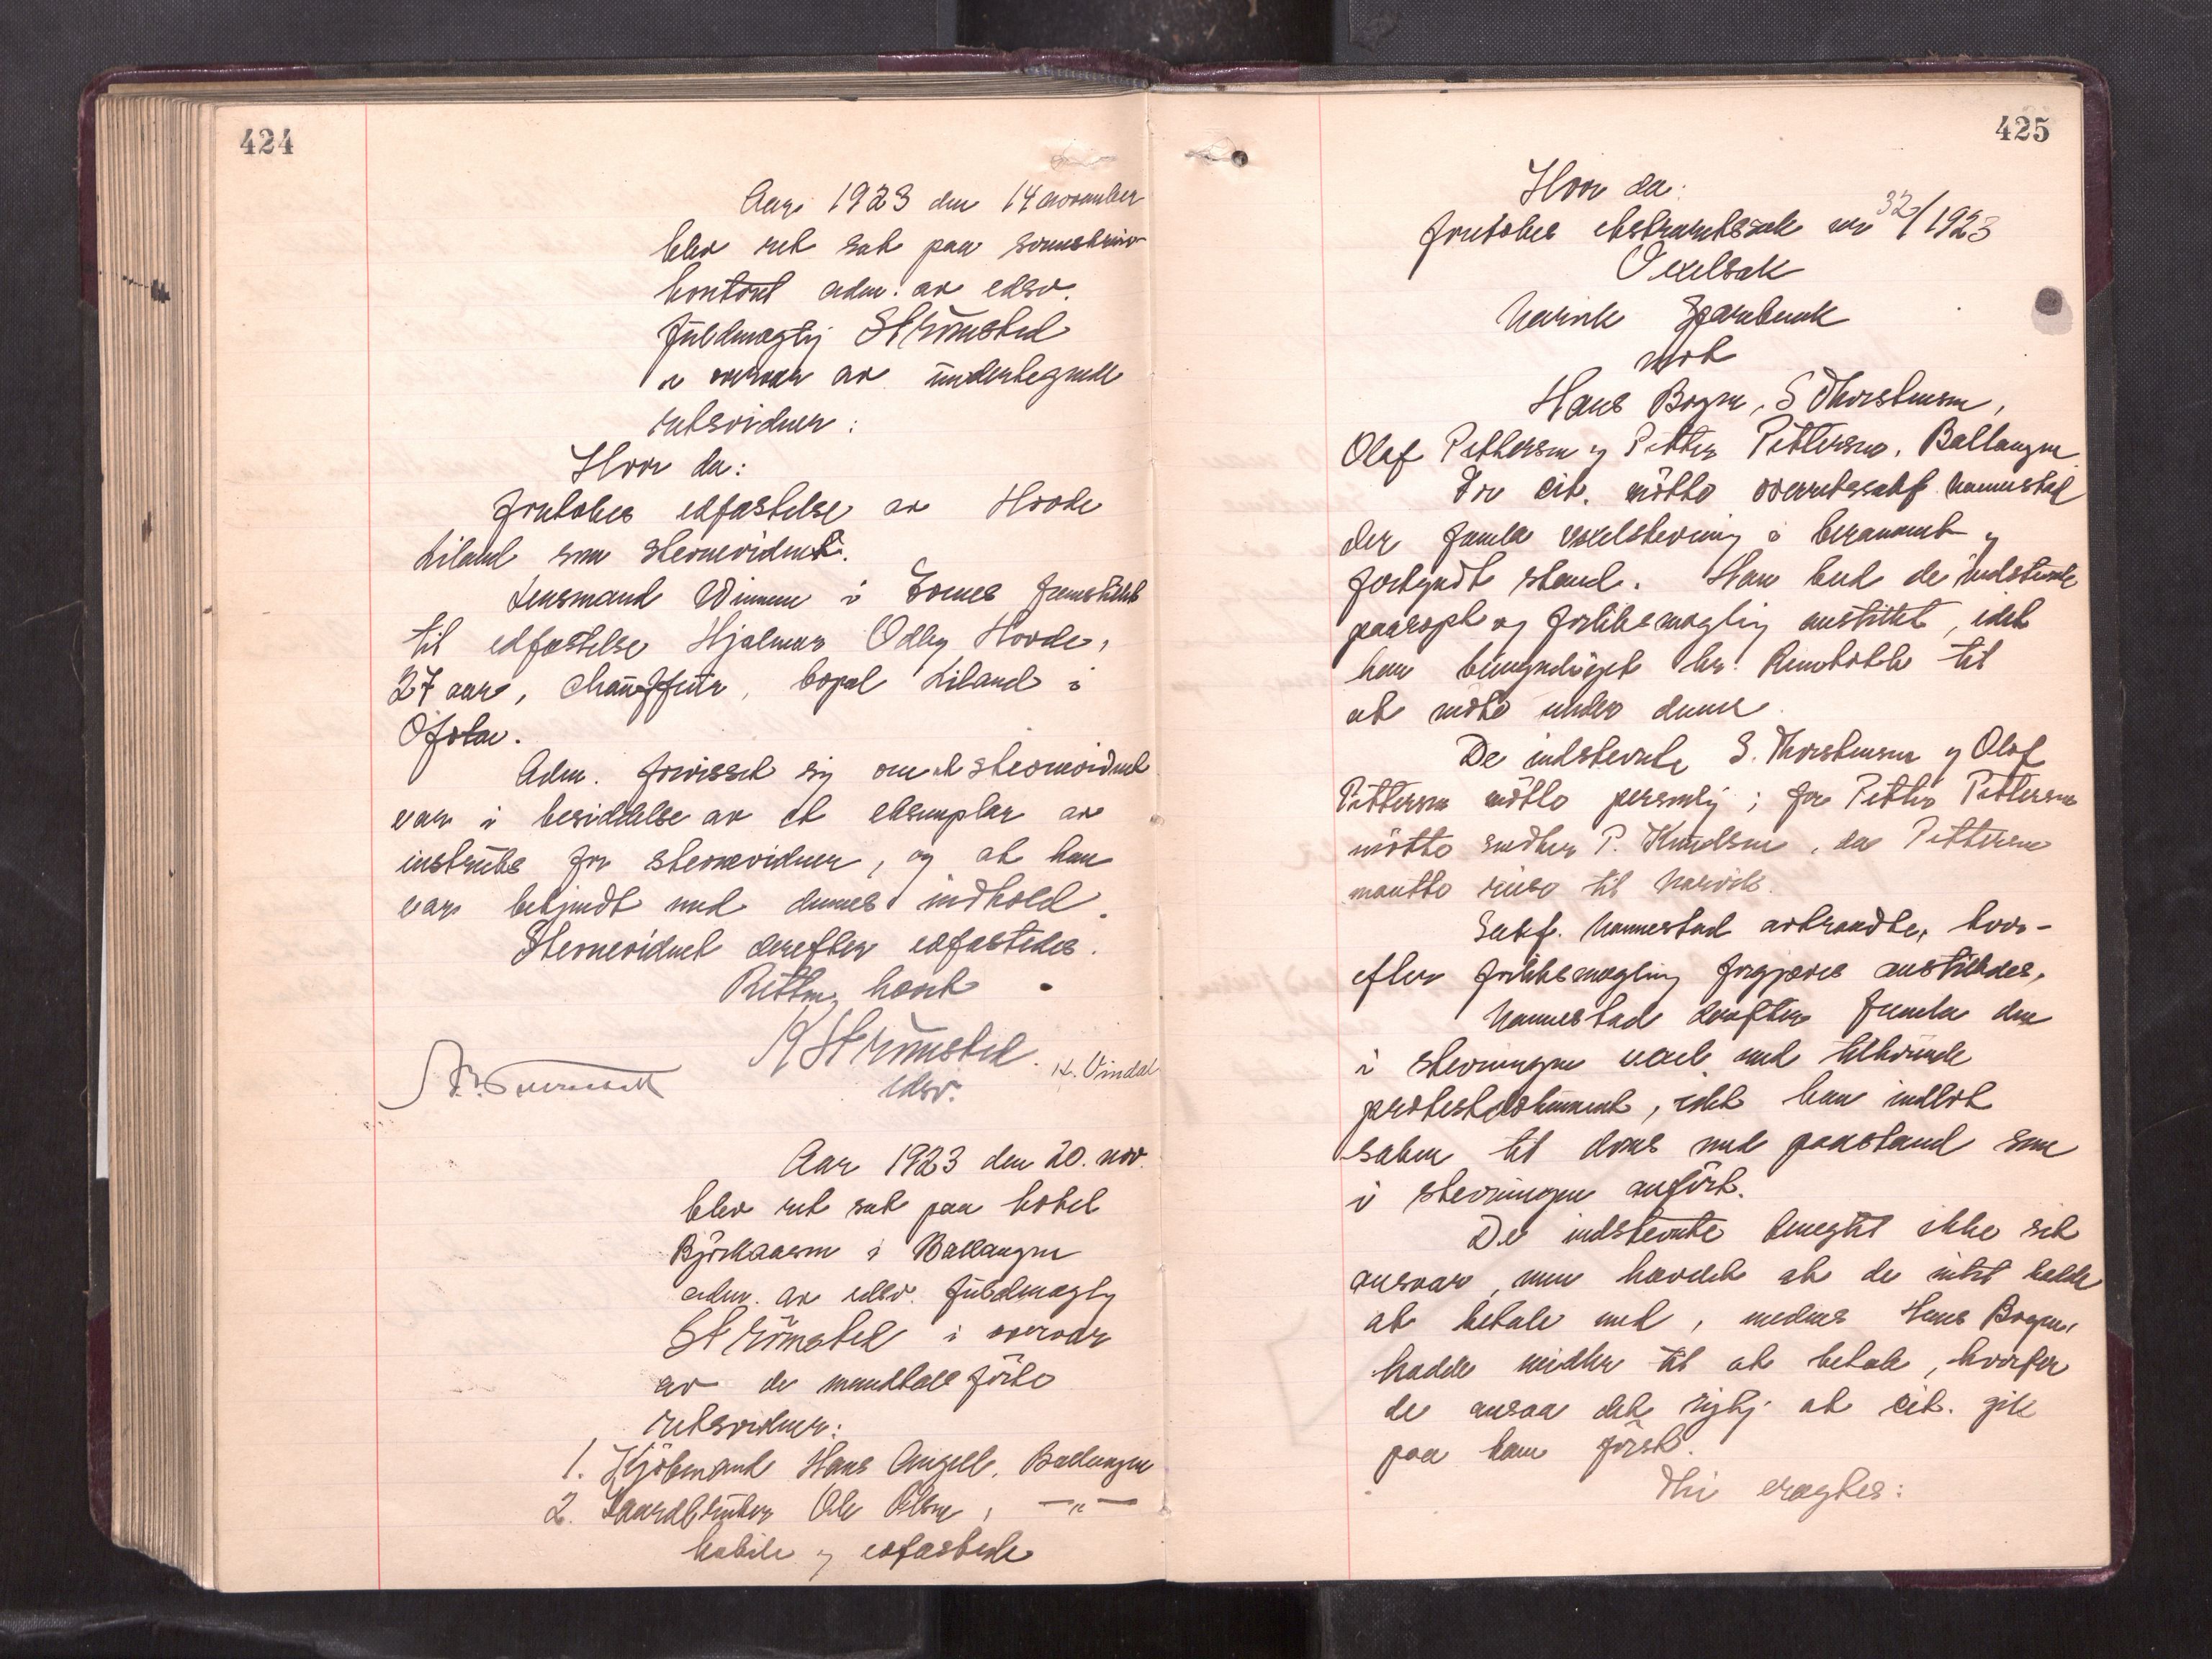 424
Aar 1923 den 14 november
blev ret sat paa sorenskriver
kontoret adm. av edsv.
fuldmægtig Strömsted
i overvær av undertegnede
retsvidner:
Hvor da:
foretokes edfæstelse av Hovde
Liland som stevnevidne.
Lensmand Winnem i Evenes fremstillet
til edfæstelse Hjalmar Odley Hovde,
27 aar, chauffeur, bopæl Liland i
Ofoten.
Adm. forvisset sig om at stevnevidnet
var i besiddelse av et eksemplar av
instruks for stevnevidner, og at han
var bekjendt med dennes indhold.
Stevnevidnet derefter edfæstedes.
Retten hævet
K Strömsted. H. Vindal
edsv.
Aar 1923 den 20. nov.
blev ret sat paa hotel
Björkaasen i Ballangen
adm. av edsv. fuldmægtig
Strömsted i overvær
av de mandtalsförte
retsvidner:
1. Kjöbmand Hans Angell, Ballangen
2. Gaardbruker Ole Olsen, —"—
habile og edfæstede
425
Hvor da:
foretokes ekstraretssak nr 32/1923
Vexelsak
Narvik Sparebank
mot
Hans Bogen, S Thorstensen,
Olaf Pettersen og Petter Pettersen, Ballangen.
For cit. mötte overretssakf. Nannestad
der fremla vexelstevning i berammet og
forkyndt stand. Han bad de indstevnte
paaropt og forliksmægling anstillet, idet
han bemyndiget hr. til
at möte under denne.
De indstevnte S. Thorstensen og Olaf
Pettersen mötte personlig; for Petter Pettersen
mötte snedker P. Knudsen, da Pettersen
maatte reise til Narvik.
Sakf. Nannestad avtraadte, hvor-
efter forliksmægling forgjæves anstilledes.
Nannestad derefter fremla den
i stevningen vexel med tilhörende
protestdokument, idet han indlot
saken til doms med paastand som
i stevningen anfört.
De indstevnte benegtet ikke sit
ansvar, men hævdet at de intet hadde
at betale med, medens Hans Bogen
hadde midler til at betale, hvorfor
de ansaa det rigtig at cit. gik
paa ham först.
Thi eragtes: